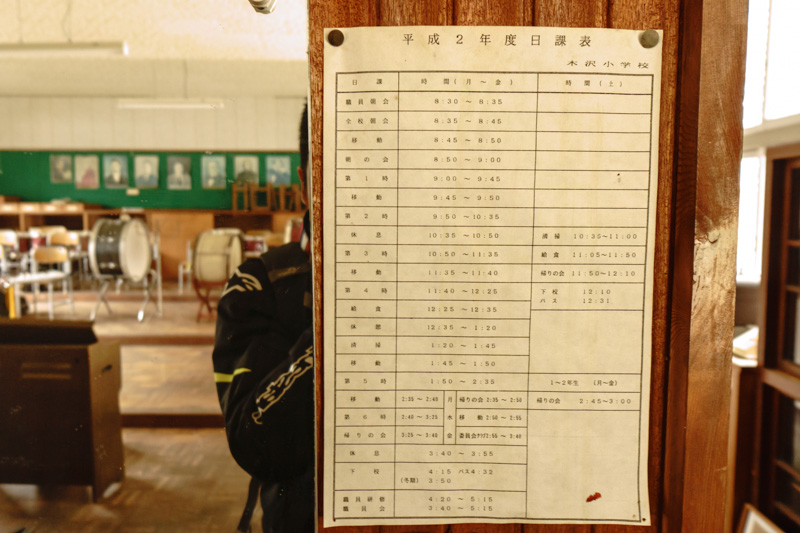 平成２年度日課表
木沢小学校
日課 時間(月～金) 時間(土)
職員朝会 8:30 ～ 8:35
全校朝会 8:35 ～ 8:45
移動 8:45 ～ 8:50
朝の会 8:50 ～ 9:00
第１時 9:00 ～ 9:45
移動 9:45 ～ 9:50
第２時 9:50 ～ 10:35
休息 10:35 ～ 10:50 清掃 10:35～11:00
第３時 10:50 ～ 11:35 給食 11:05～11:50
移動 11:35 ～ 11:40 帰りの会 11:50～12:10
第４時 11:40 ～ 12:25 下校 12.10
バス 12:31
給食 12:25 ～ 12:35
休憩 12:35 ～ 1:20
清掃 1:20 ～ 1:45
移動 1:45 ～ 1:50
第５時 1:50 ～ 2:35 1～2年生 (月～金)
移動 2:35～2:40 月 帰りの会 2:35～2:50 帰りの会 2:45～3:00
第６時 2:40～3:25 木 移動 2:50～2:55
帰りの会 3:25～3:40 金 委員会ｸﾗﾌﾞ2:55～3:40
休息 3:40 ～ 3:55
下校 4:15 バス4:32
(冬期) 3:50
職員研修 4:20 ～ 5:15
職員会 3:40 ～ 5:15